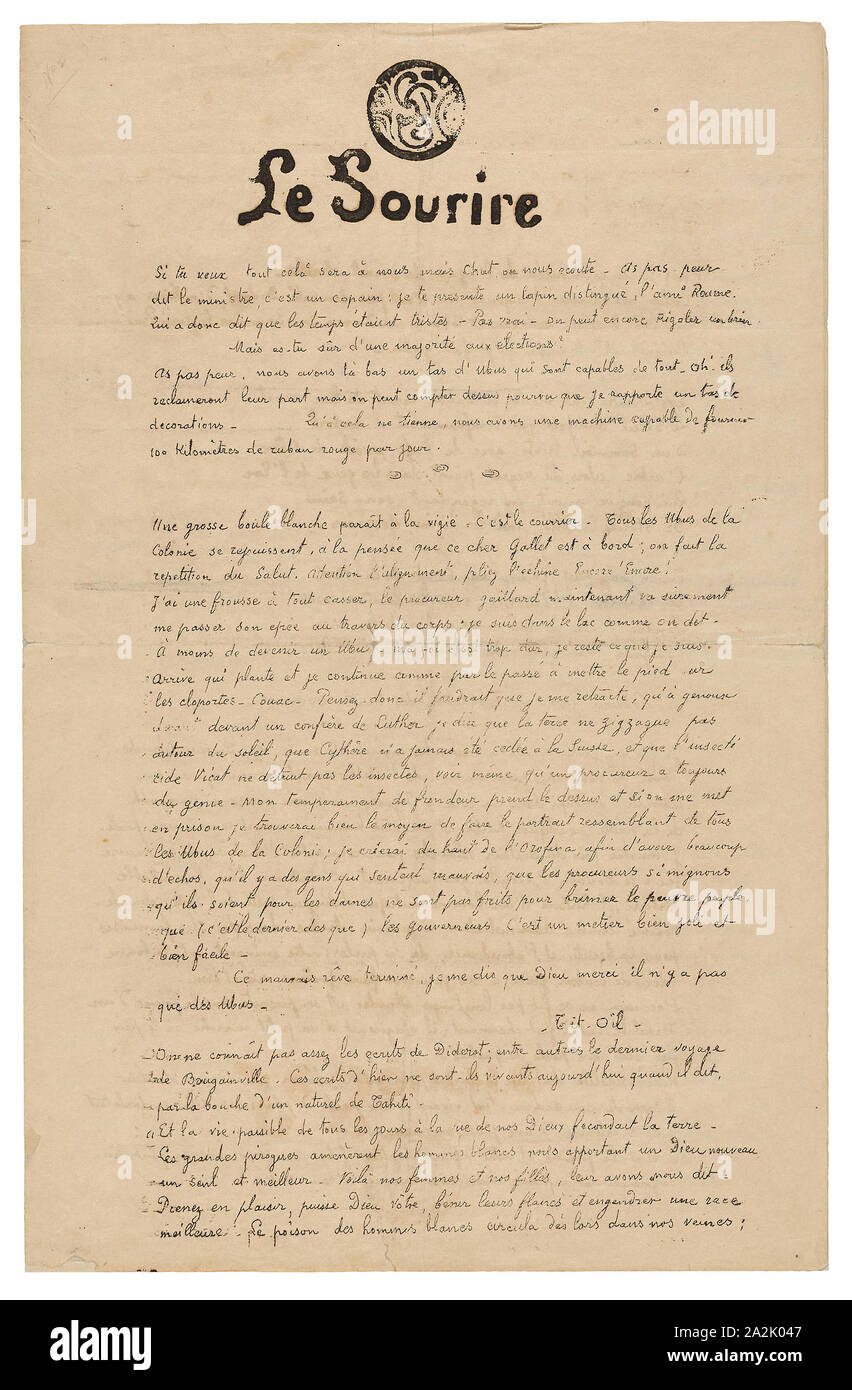 Le Sourire
Si tu veux tout cela sera à nous mais chut on nous ecoute - As pas peur
dit le ministre, c'est un copain ; je te presente un lapin distingué, l'ami Roume.
Qui a donc dit que les temps étaient tristes - Pas vrai - on peut encore Rigoler un brin
Mais es-tu sûr d'une majorité aux elections ?
As pas peur, nous avons là bas un tas d'Ubus qui sont capables de tout - Oh! ils
reclameront leur part mais on peut compter dessus pourvu que je rapporte un tas de
decorations - Qu'à cela ne tienne, nous avons une machine capable de fournir
100 Kilomètres de ruban rouge par jour.
Une grosse boule blanche parait à la vigie. C'est le courrier - Tous les Ubus de la
Colonie se rejouissent, à la pensée que ce cher Gallet est à bord ; on fait la
repetition du Salut. Attention l'alignement, pliez l'echine Encore! Encore!
J'ai une frousse à tout casser, le procureur gaillard maintenant va surement
me passer son epée au travers du corps ; je suis dans le lac comme on dit -
A moins de devenir un Ubu - trop dur, je reste ce que je suis.
Arrive qui plante et je continue comme par le passé à mettre le pied sur
les cloportes - Couac - Pensez donc il faudrait que je me retracte, qu'à genoux
devant un confrère de Luther je dise que la terre ne zigzague pas
autour du soleil, que Cythère n'a jamais été cedée à la Suisse, et que l'insecti
cide Vicat ne detruit pas les insectes, voir même, qu'un procureur a toujours
du genie - Mon temperament de frondeur prend le dessus et si on me met
en prison je trouverai bien le moyen de faire le portrait ressemblant de tous
les Ubus de la Colonie ; je crierai du haut de l'Orofina, afin d'avoir beaucoup
d'echos, qu'il y a des gens qui sentent mauvais, que les procureurs si mignons
qu'ils soient pour les dames ne sont pas faits pour brimer le pauvre peuple
que (c'est le dernier des que) les Gouverneurs C'est un metier bien joli et
bien facile -
Ce mauvais rêve terminé, je me dis que Dieu merci il n'y a pas
que des Ubus -
- Tit-Oil -
On ne connait pas assez les ecrits de Diderot ; entre autres le dernier voyage
de Bougainville. Ces ecrits d'hier ne sont-ils vivants aujourd'hui quand il dit,
par la bouche d'un naturel de Tahiti -
Et la vie paisible de tous les jours à la vue de nos Dieux fecondait la terre -
Les grandes pirogues amenèrent les hommes blancs nous apportant un Dieu nouveau
un seul et meilleur - Voilà nos femmes et nos filles, leur avons nous dit -
Prenez en plaisir, puisse Dieu vôtre, bénir leurs flancs et engendrer une race
meilleure - Le poison des hommes blancs circula dès lors dans nos veines ;
alamy
Image ID: 2A2K047
www.alamy.com